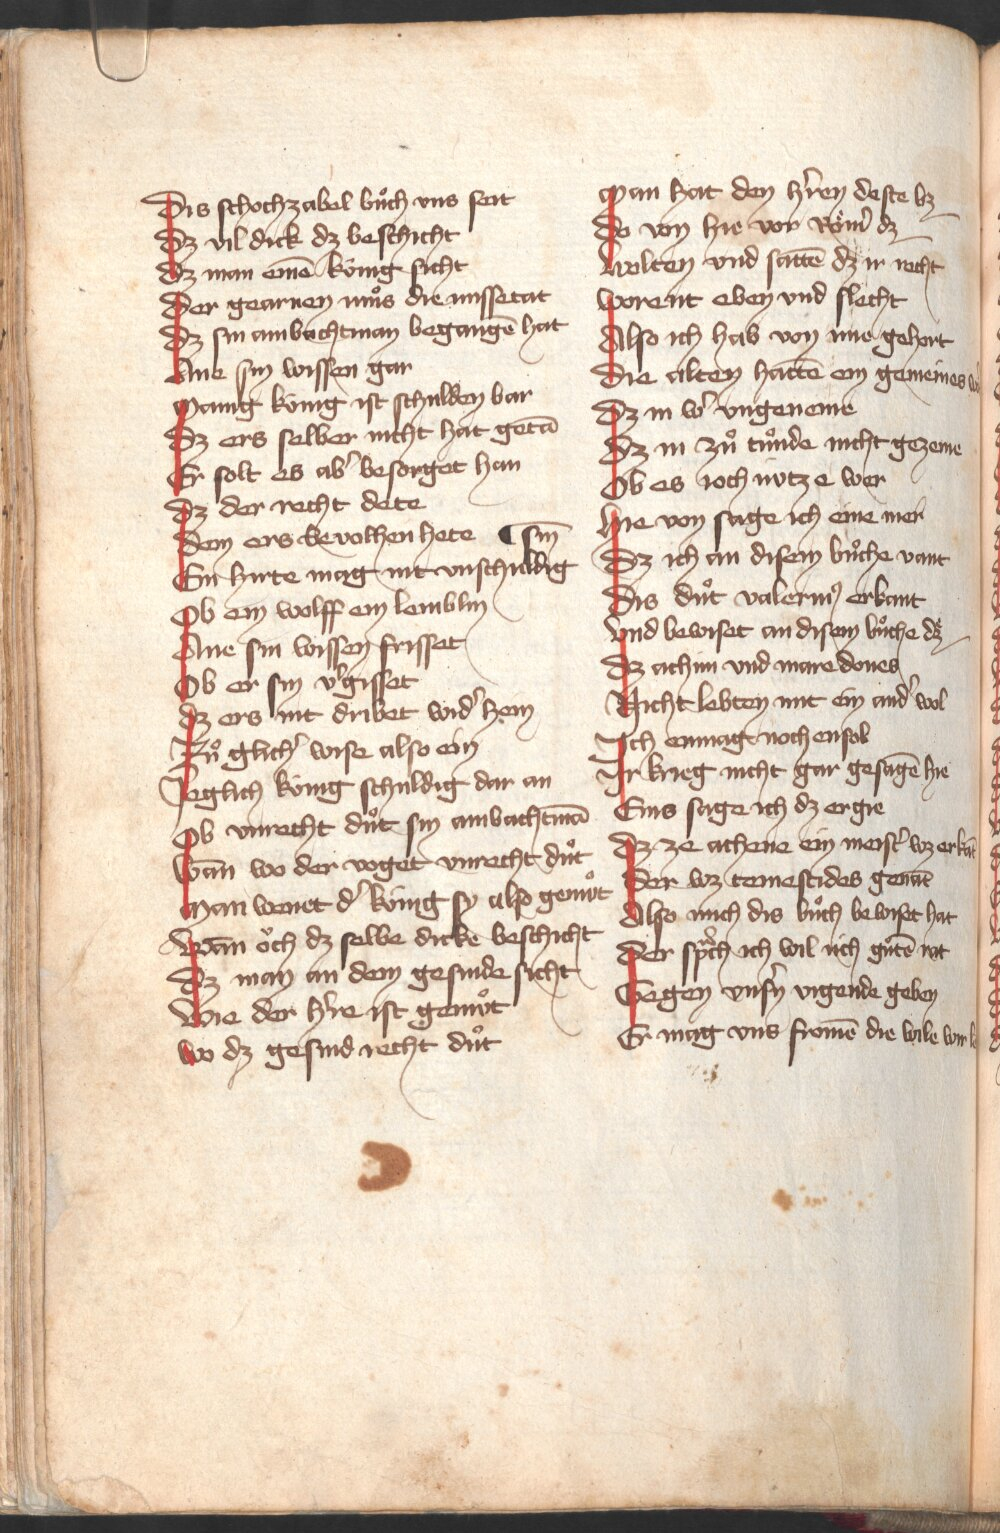 Dis schochzabel bůch vns seit
Dz vil dick dz beschicht
Dz man einē könig sicht
Der gearnen můs die missetat
Dz sin ambachtman begangē hat
Ane sin wissen gar
Manig könig ist schulden bar
Dz ers selber nicht hat getā
Er solt es ab' besorget han
Dz der recht dete
Dem ers bevolhen hete ¶ sin
Ein hirte mag nit vnschuldig
Ob ein wolff ein lemblin
Ane sin wissen frisset
Ob er sin v'gisset
Dz ers nit dribet wid' hein
Zů glich' wise also ein
Jeglich könig schuldig dar an
Ob vnrecht důt sin ambachtmā
Wān wo der voget vnrecht důt
Man wenet d' könig sy also gemůt
Wān öch dz selbe dicke beschicht
Dz man an dem gesinde sicht
Wie der h're ist gemůt
Wo dz gesind recht důt
Man hat den h'ren deste bz
Do von hie vor Röm' dz
Wolten vnd sattē dz ir recht
Worent eben vnd slecht
Also ich hab von ime gehort
Die alten hattē ein gemeines
Dz in w' vngeneme
Dz in zů tůnde nicht gezeme
Ob es ioch nütz e wer
Hie von sage ich eine mer
Dz ich an disem bůche vant
Dis důt valerius erkant
Vnd bewiset an disem bůche dz
Dz achim vnd maredones
Nicht lebten mit ein and' wol
Ich enmag noch ensol
Ir krieg nicht gar gesagē hie
Eins sage ich dz ergie
Dz ze athene ein meist' wz erkāt
Der wz temestides genāt
Also mich dis bůch bewiset hat
Der sprach ich wil üch gutē rat
Gegen vns'n vigende geben
Er mag vns fromē die wile wir